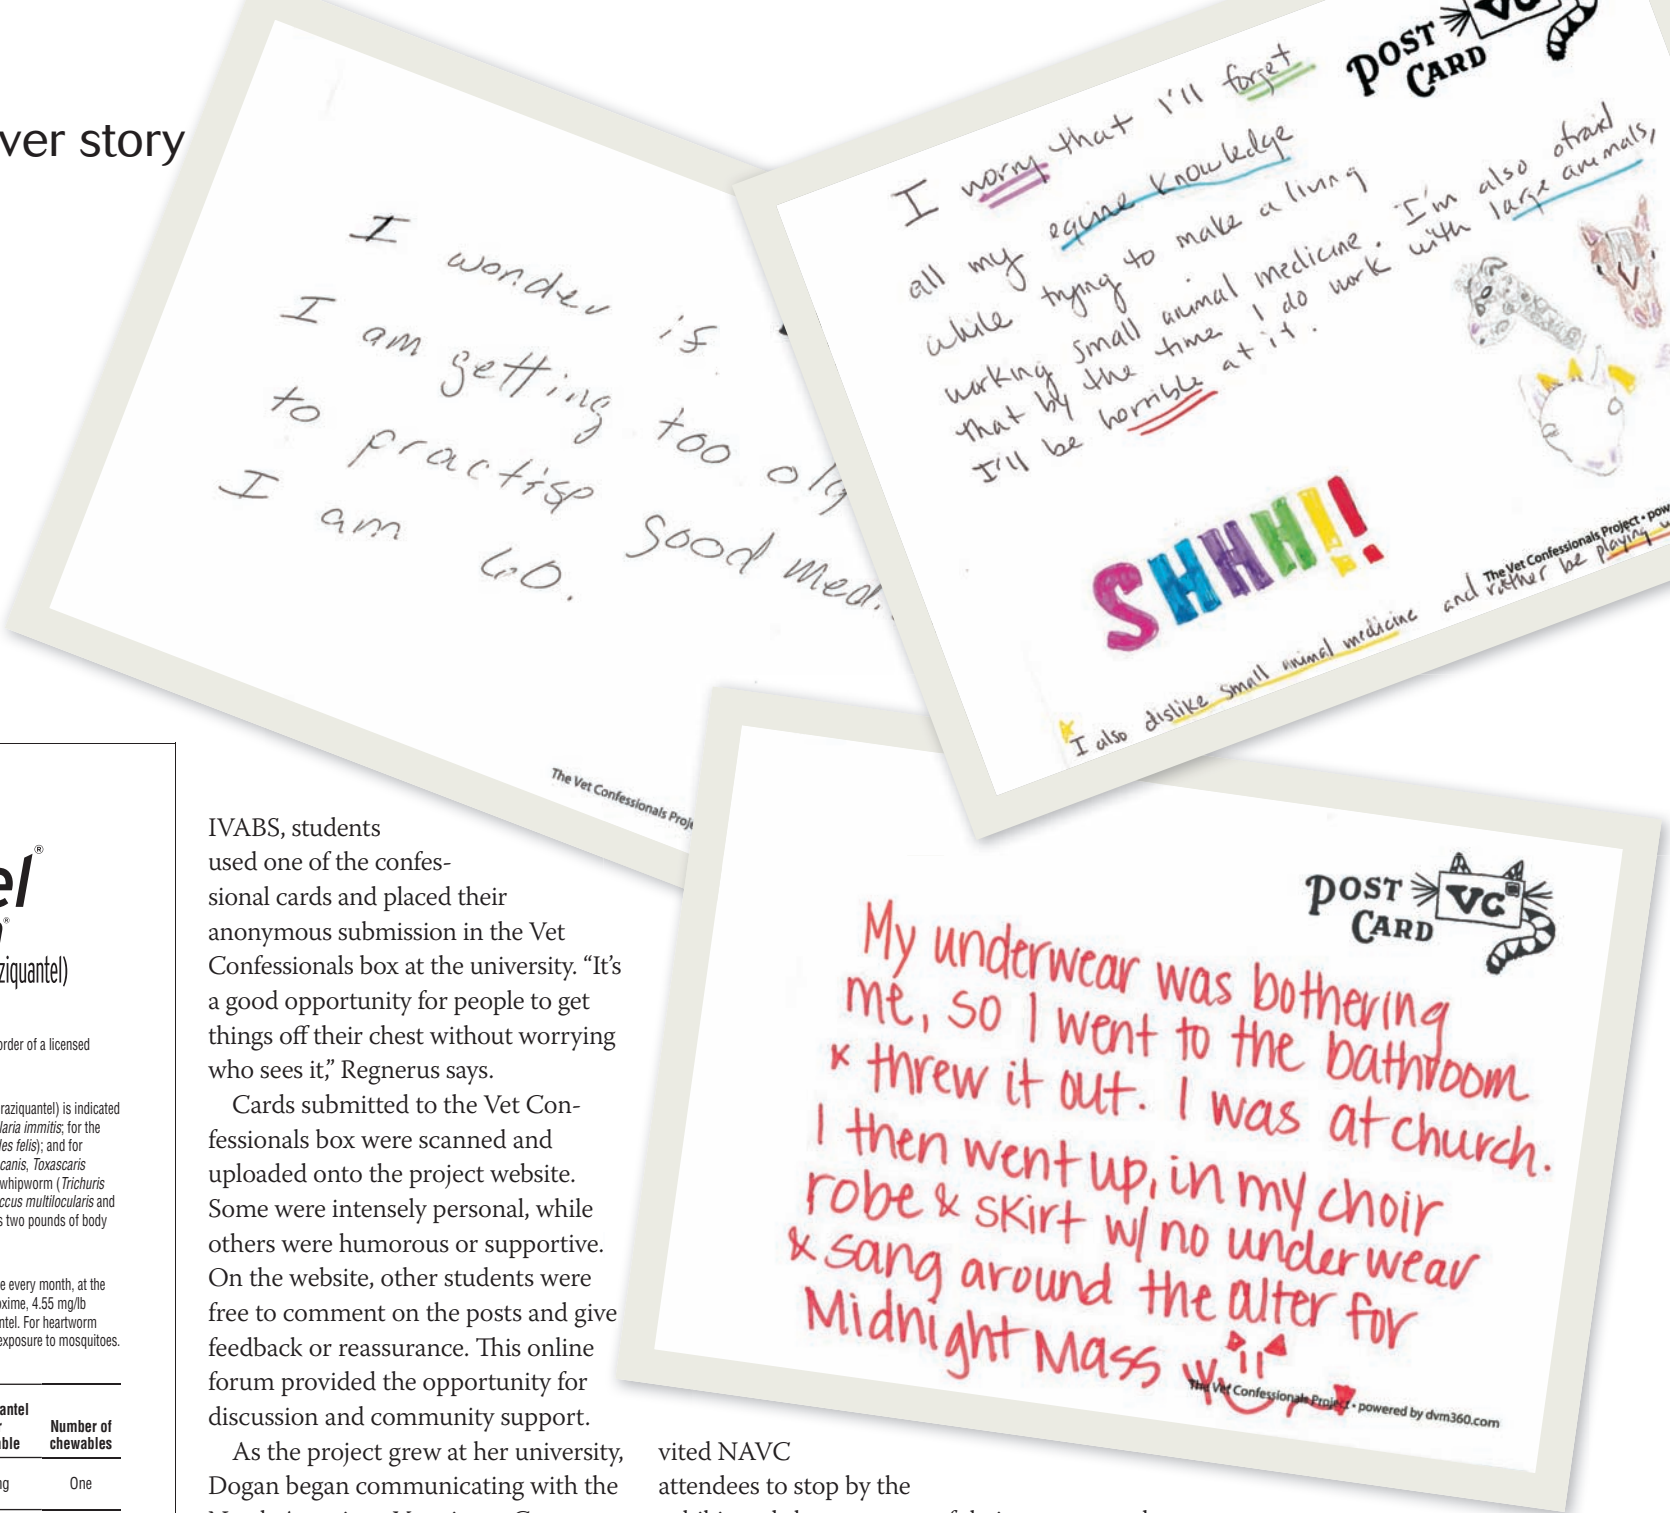 ver story
I wonder if
I am getting too old
to practise good med.
I am 60.
The Vet Confessionals Proje
POST
CARD
VC
I worry that I'll forget
all my equine knowledge
while trying to make a living
working small animal medicine. I'm also afraid
that by the time I do work with large animals,
I'll be horrible at it.
SHHH!!
The Vet Confessionals Project • pow
I also dislike small animal medicine and rather be playing
POST
CARD
VC
My underwear was bothering
me, so I went to the bathroom
& threw it out. I was at church.
I then went up, in my choir
robe & skirt w/ no underwear
& sang around the alter for
Midnight Mass
The Vet Confessionals Project • powered by dvm360.com
el®
®
ziquantel)
order of a licensed
raziquantel) is indicated
laria immitis; for the
des felis); and for
canis, Toxascaris
whipworm (Trichuris
ccus multilocularis and
s two pounds of body
e every month, at the
oxime, 4.55 mg/lb
ntel. For heartworm
exposure to mosquitoes.
antel
r
able
Number of
chewables
g
One
IVABS, students
used one of the confes-
sional cards and placed their
anonymous submission in the Vet
Confessionals box at the university. “It’s
a good opportunity for people to get
things off their chest without worrying
who sees it,” Regnerus says.
Cards submitted to the Vet Con-
fessionals box were scanned and
uploaded onto the project website.
Some were intensely personal, while
others were humorous or supportive.
On the website, other students were
free to comment on the posts and give
feedback or reassurance. This online
forum provided the opportunity for
discussion and community support.
As the project grew at her university,
Dogan began communicating with the
vited NAVC
attendees to stop by the